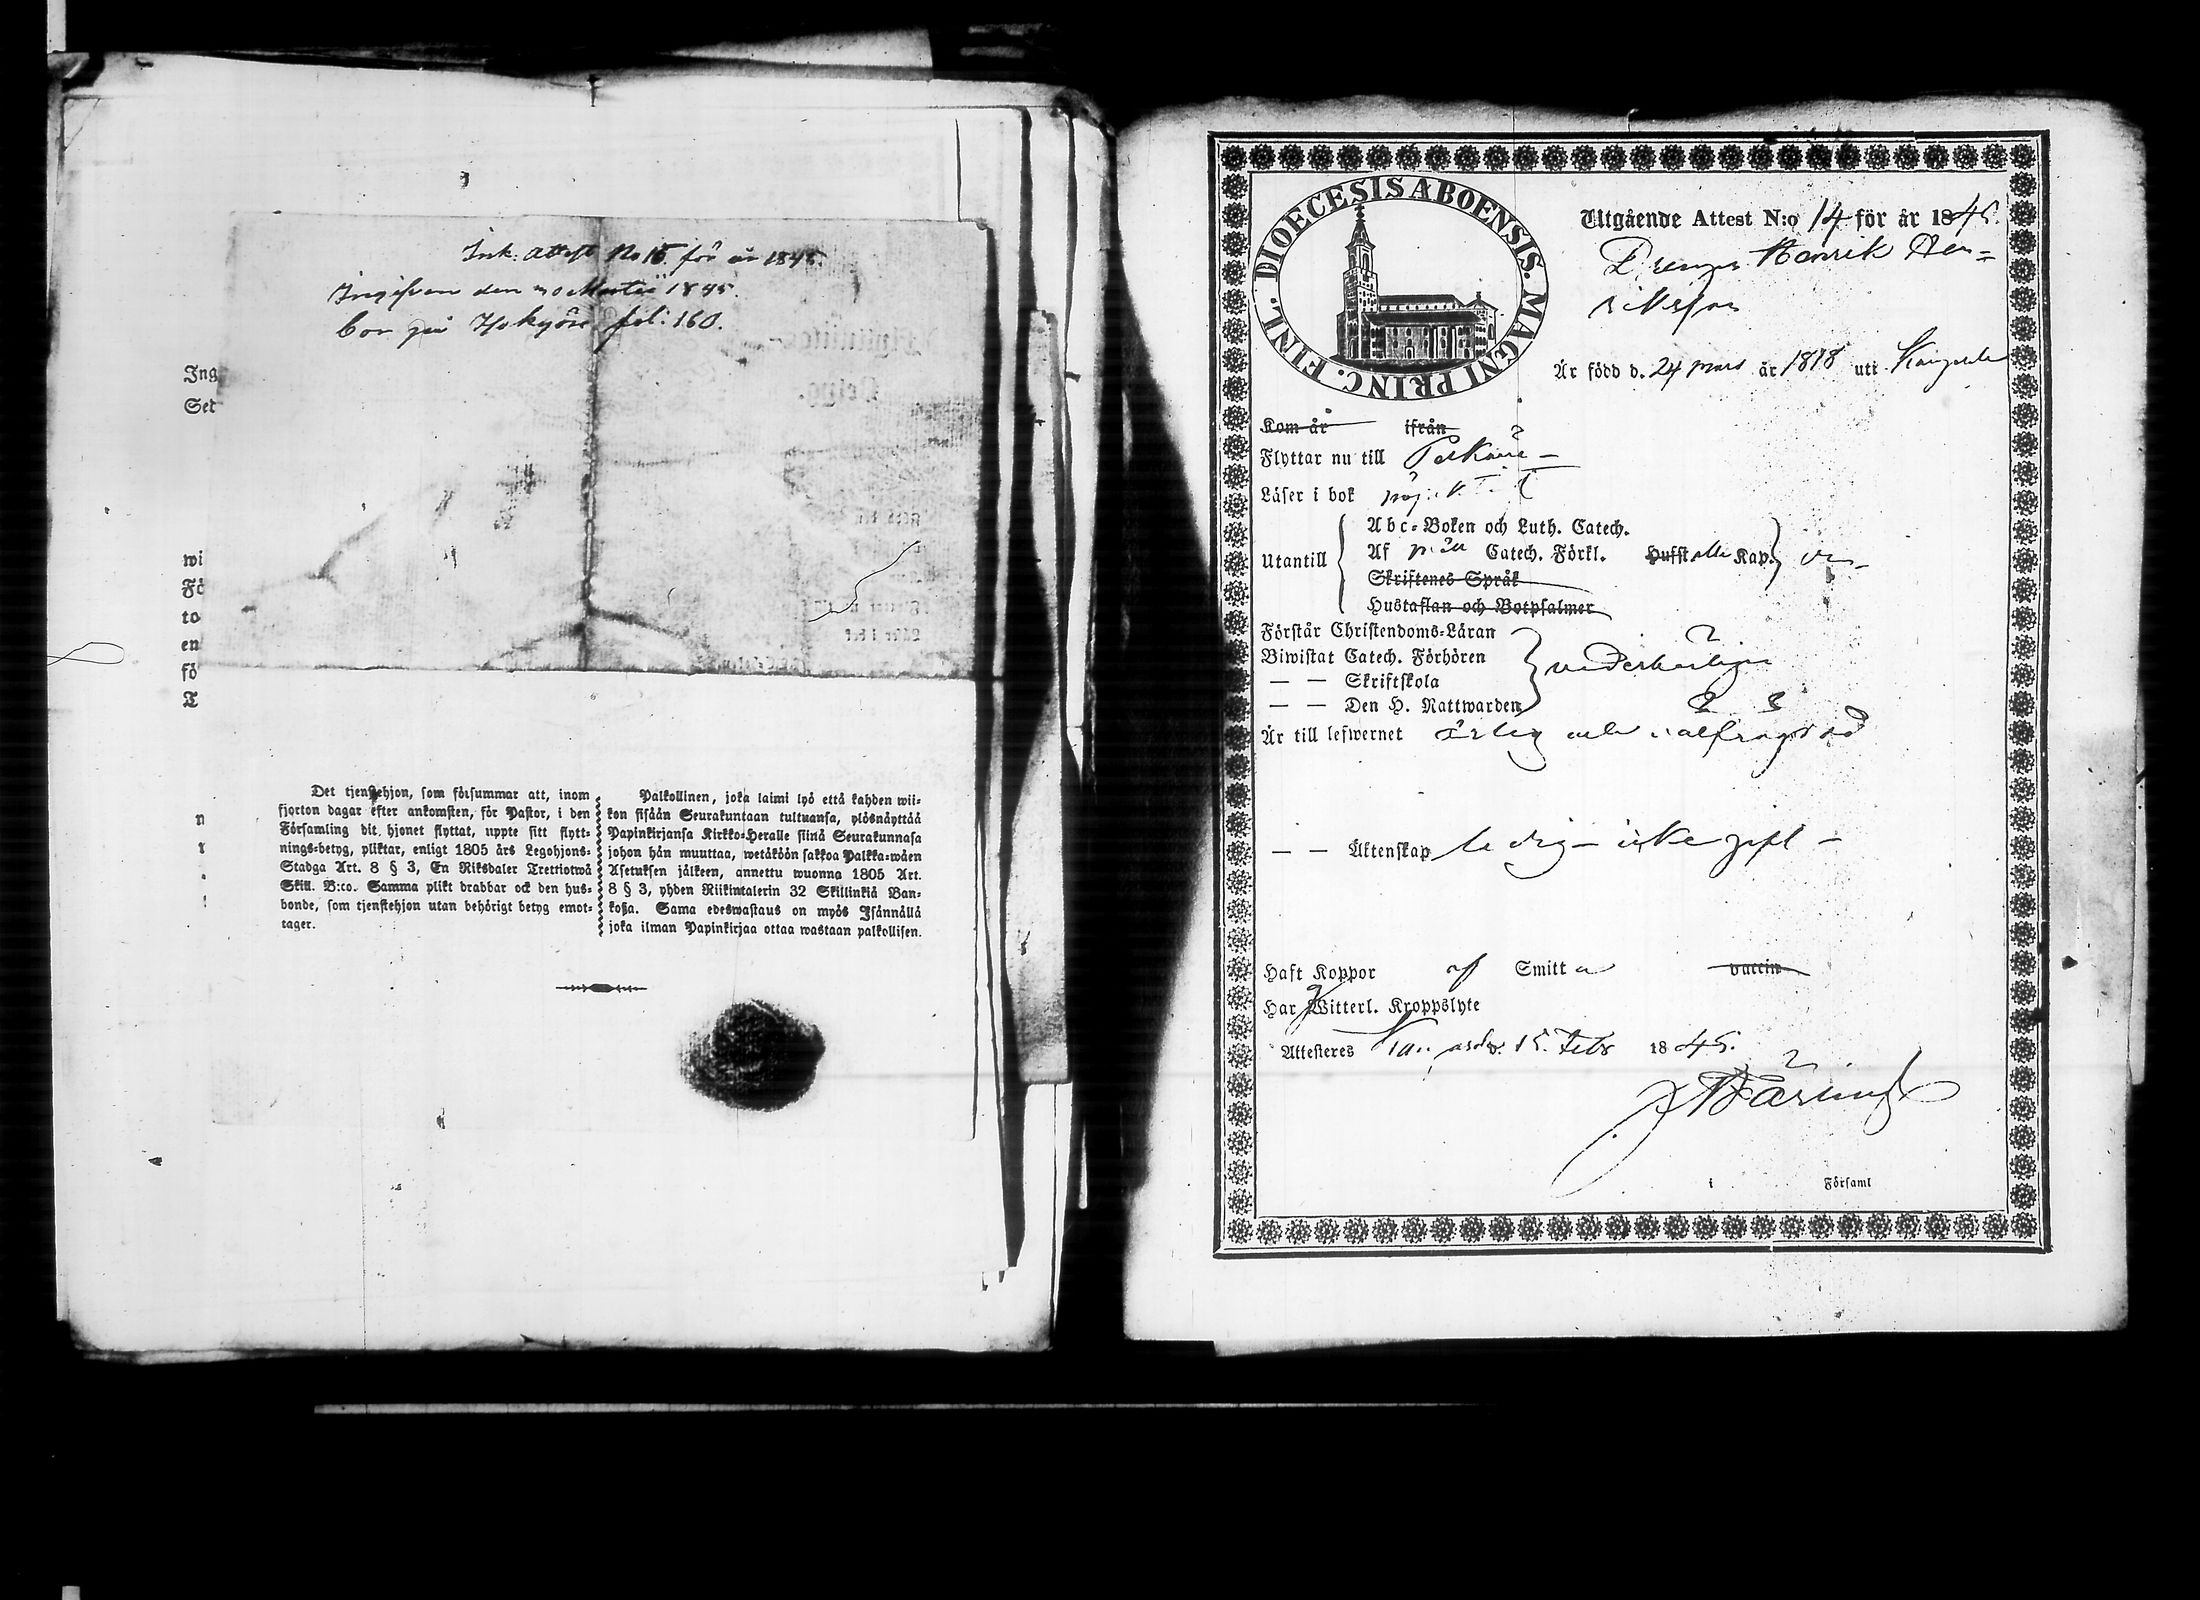 Ink. Attest No 15 för år 1845.
Ingifven den 20 Martii 1845.
Bor på fol. 160.
Ing
Set
wi
Fö
to
en
fö
T
Det tjenstehjon, som försummar att, inom
fjorton dagar efter ankomsten, för Pastor, i den
Församling dit hjonet flyttat, uppte sitt flytt-
nings-betyg, pliktar, enligt 1805 års Legohjons-
Stadga Art. 8 § 3, En Riksdaler Trettiotwå
Skill. B:co. Samma plikt drabbar ock den hus-
bonde, som tjenstehjon utan behörigt betyg emot-
tager.
Palkollinen, joka laimi lyö että kahden wii-
kon sisään Seurakuntaan tultuansa, ylösnäyttää
Papinkirjansa Kirkko-Heralle siinä Seurakunnasa
johon hän muuttaa, wetäköön sakkoa Palkka-wäen
Asetuksen jälkeen, annettu wuonna 1805 Art.
8 § 3, yhden Riikintalerin 32 Skillinkiä Ban-
kossa. Sama edeswastaus on myös Isännällä
joka ilman Papinkirjaa ottaa wastaan palkollisen.
DIOECESIS ABOENSIS. MAGNI PRINC. FINL.
Utgående Attest N:o 14 för år 1845.
Drengen Henrik Hen-
riksson
Är född d. 24 mars år 1818 uti Kangasala
Kom år ifrån
Flyttar nu till Pelkäne
Läser i bok
Utantill
Abc-Boken och Luth. Catech.
Af Catech. Förkl. Hufst. alla Kap.
Skriftenes Språk
Hustaflan och Botpsalmer
Förstår Christendoms-Läran
Biwistat Catech. Förhören
— — Skriftskola
— — Den H. Nattwarden
vederbörligen
Är till lefwernet ärlig och wälfrägdad
— — Äktenskap ledig icke gift
Haft Koppor af Smitta vaccin
Har Witterl. Kroppslyte
Attesteres Kangasala d. 15. Febr 1845.
i Församl